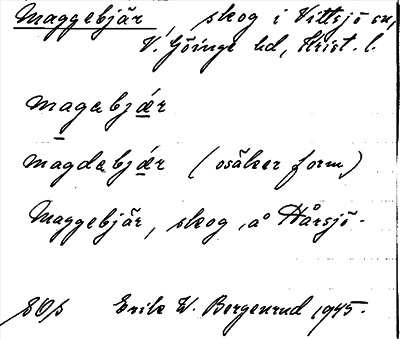 Maggebjär, skog i Vittsjö sn,
V. Göinge hd, Krist. l.
magabjǽr
magdabjǽr (osäker form)
Maggebjär, skog, å Hårsjö.
Erik W. Bergenrud 1945.